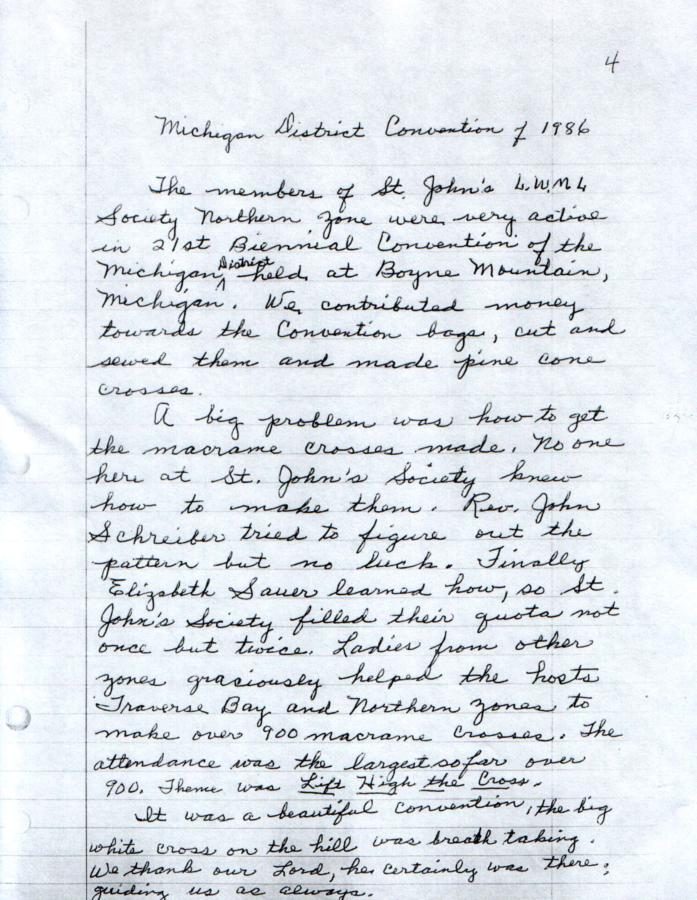 4
Michigan District Convention of 1986
The members of St. John's L.W.M.L
Society Northern Zone were very active
in 21st Biennial Convention of the
Michigan District held at Boyne Mountain,
Michigan. We contributed money
towards the Convention bags, cut and
sewed them and made pine cone
crosses.
A big problem was how to get
the macrame crosses made. No one
here at St. John's Society knew
how to make them. Rev. John
Schreiber tried to figure out the
pattern but no luck. Finally
Elizabeth Sauer learned how, so St.
John's Society filled their quota not
once but twice. Ladies from other
zones graciously helped the hosts
Traverse Bay and Northern zones to
make over 900 macrame crosses. The
attendance was the largest so far over
900. Theme was Lift High the Cross.
It was a beautiful convention, the big
white cross on the hill was breath taking.
We thank our Lord, he certainly was there,
guiding us as always.